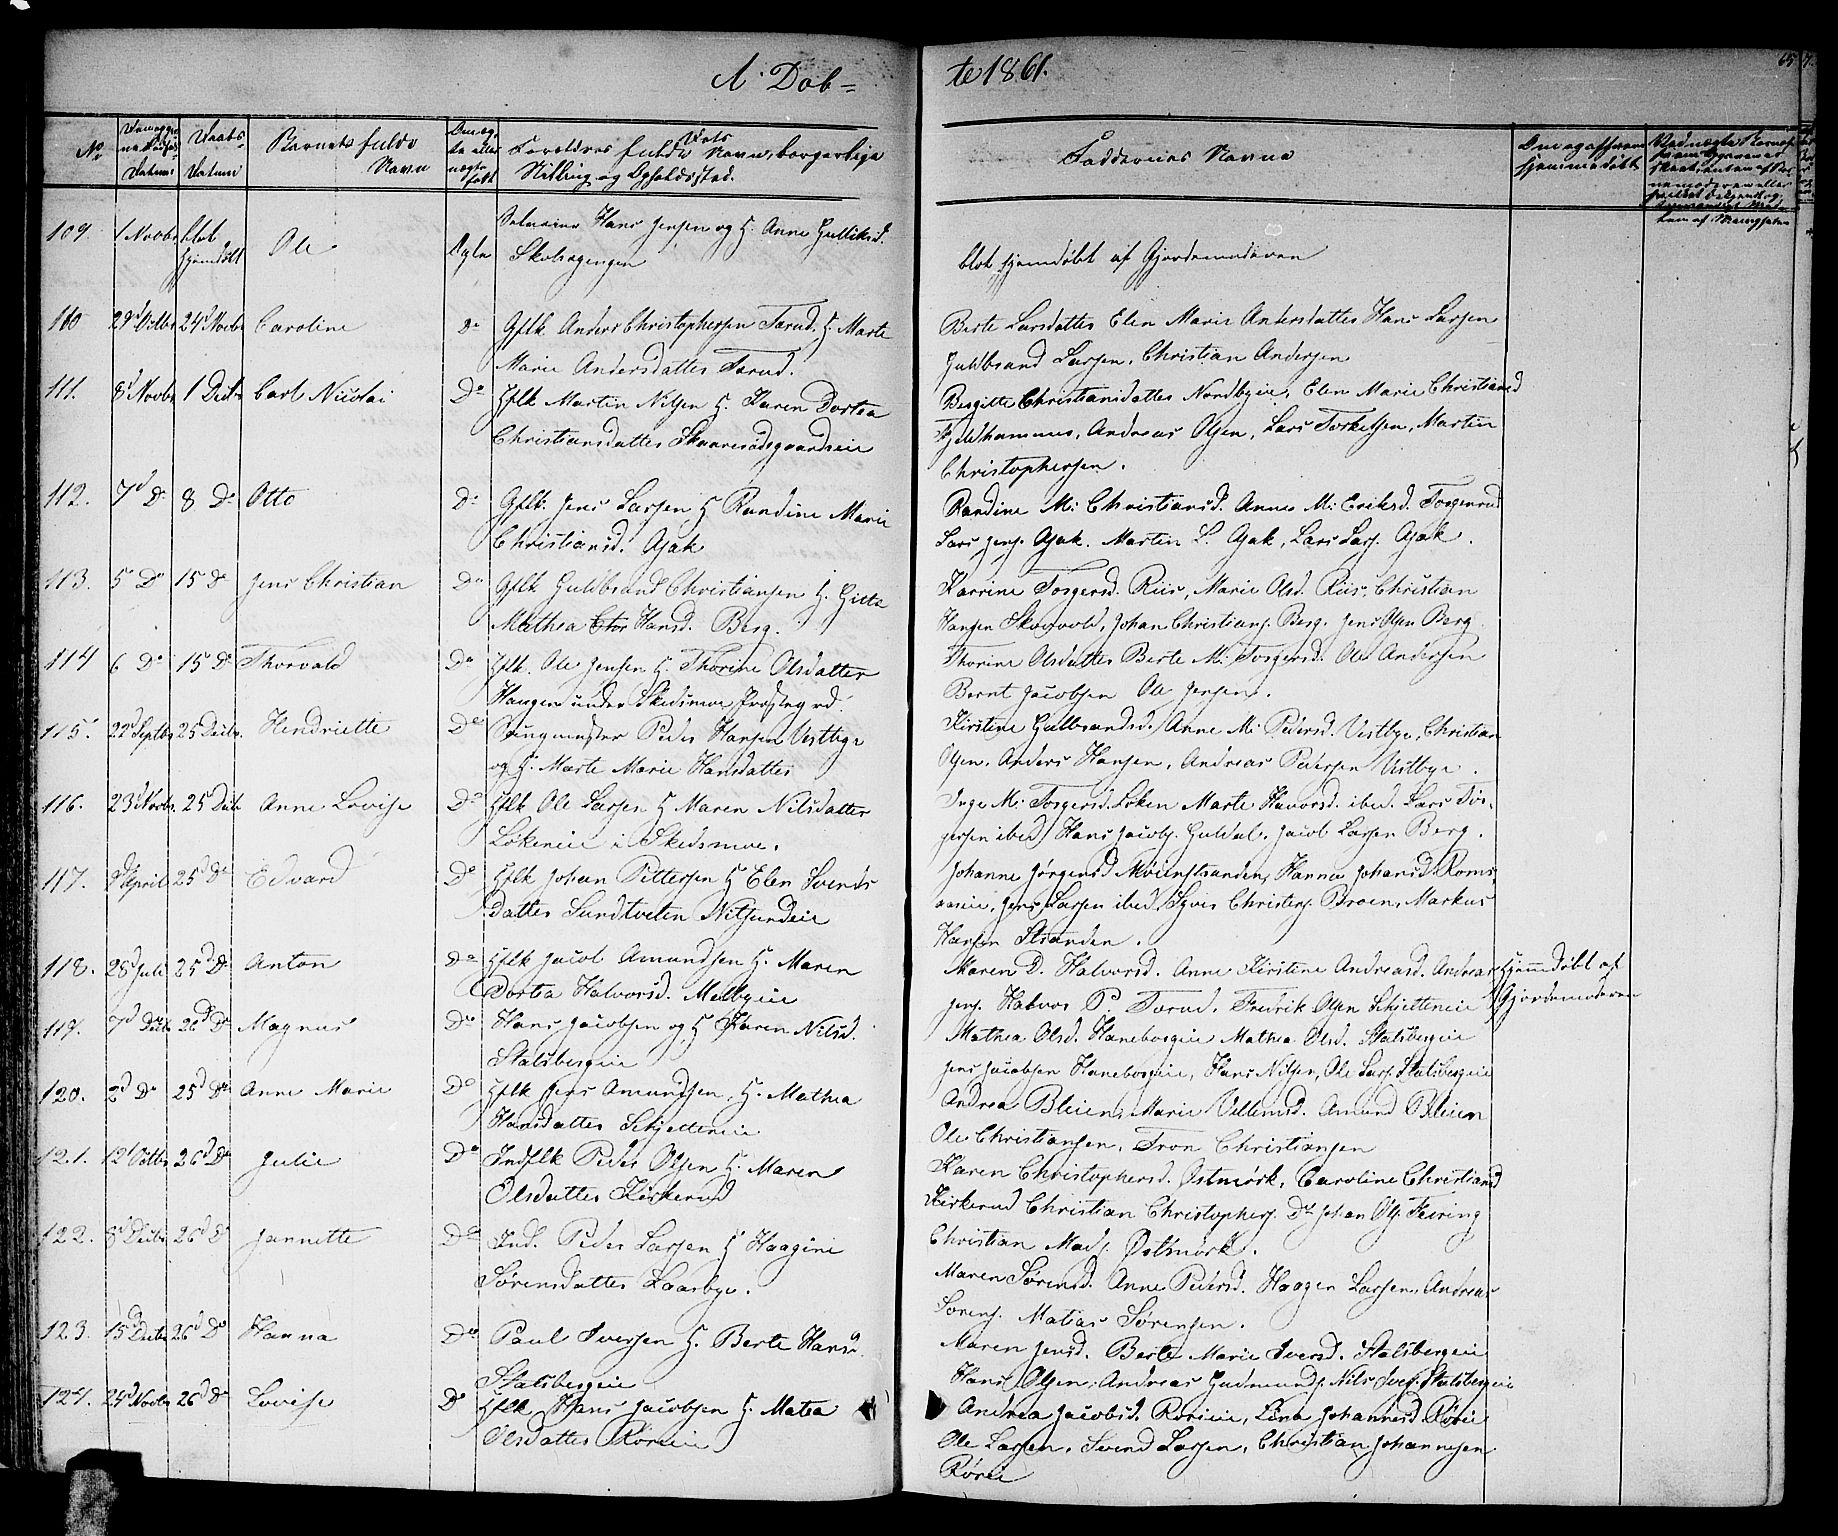 A. Døb=
te 1861.
65
No
Daabs
Datum
Barnets fulde
Navn
Forældres fulde Navn, borgerlige
Stilling og Opholdssted.
Faddernes Navne
109. 1 Novbr blot hjemdøbt Ole Ægte Hans Jensen og H. Anne Gulliksd.
Skobogengen
blot hjemdøbt af Gjordemoderen
110 29d Octbr 24d Novbr Caroline Do Gflk Anders Christophersen Tærud. H. Marte
Marie Andersdatter Tærud.
Berte Larsdatter Elen Marie Andersdatter Hans Larsen
Guldbrand Larsen, Christian Andersen
111. 8d Novbr 1 Decbr Carl Nicolai Do Hflk Martin Nilsen H. Karen Dortea
Christiansdatter
Birgitte Christiansdatter Nordbyeie, Elen Marie Christiansd
Fjeldhammer, Andreas Olsen, Lars Torkelsen, Martin
Christophersen.
112. 7d Do 8 Do Otto Do Gflk. Jens Larsen H Randine Marie
Christiansd. Gjak
Randine M: Christiansd. Anne M: Eriksd. Torgerrud
Lars Jens. Gjak. Martin L. Gjak, Lars Lars. Gjak.
113. 5 Do 15 Do Jens Christian Do Gflk Guldbrand Christiansen H. Gitte
Mathea Hansd. Berg.
Karrine Torgersd. Riis, Marie Olsd. Riis, Christian
Hansen Skovvold, Johan Christians. Berg. Jens Olsen Berg
114 6 Do 15 Do Thorvald Do Hflk. Ole Jensen H. Thorine Olsdatter
Haugen under Skedsmoe Præstegrd.
Thorine Olsdatter Berte M: Torgersd. Ole Andersen
Bernt Jacobsen Ole Jensen.
115. 22d Septbr 25 Decbr. Hendriette Do Peder Hansen Vestbye
og H. Marte Marie Hansdatter
Kirstine Gulbrandsd. Anne M: Pedersd. Vestbye, Christian
Olsen, Anders Hansen, Andreas Pedersen Vestbye.
116. 23d Novbr. 25 Decb Anne Lovise Do Hflk Ole Larsen H Maren Nilsdatter
Løkeneie i Skedsmoe.
Inge M: Torgersd. Løken Marte Havorsd. ibed. Lars Tor-
gersen ibed Hans Jacobs. Guldal. Jacob Larsen Berg.
117. 9d April 25d Do Edvard Do Hflk Johan Pettersen H Elen Svends
datter Sundtveten Nitsundeie
Johanne Jørgensd Hanna Johansd. Roms
aaseie, Jens Larsen ibed, Syver Christens. Broen, Markus
Hansen Stranden.
118. 28d Juli 25d Do Anton Do Hflk Jacob Amundsen H. Maren
Dortea Halvorsd. Melbyeie
Maren D. Halvorsd. Anne Kirstine Andreasd. Andreas
Jens. Halvor P. Tærud. Fredrik Olsen Skjetteneie
Hjemdøbt af
Gjordemoderen
119. 7d Decb 26d Do Magnus Do Hans Jacobsen og H Karen Nilsd.
Stalsbergeie
Mathea Olsd. Haneborgeie Mathea Olsd. Stalsbergeie
Jens Jacobsen Haneborgeie, Hans Nilsen, Ole Lars. Stalsbergeie
120. 2d Do 25d Do Anne Marie Do Hflk Jens Amundsen, H. Mathea
Hansdatter Skjetteneie
Andrea Bleien, Marie Villumsd. Amund Bleien
Ole Christiansen, Tron Christiansen
121. 12d Octbr 26d Do Julie Do Indflk Peder Olsen H. Maren
Olsdatter Kirkerud
Karen Christophersd. Østmork, Caroline Christiansd
Kirkerud Christian Christophers. Do Johan Ols. Feiring
Christian Mads. Østmork.
122. 8d Decbr 26d Do Jannette Do Ind. Peder Larsen H Haagine
Sørensdatter Laasbye.
Maren Sørensd. Anne Pedersd. Haagen Larsen, Andreas
Sørens. Matias Sørensen.
123. 15d Decbr 26d Do Hanna Do Paul Iversen H. Berte Hansd.
Stalsbergeie
Maren Jensd. Berte Marie Iversd. Stalsbergeie
Hans Olsen, Andreas Gudmunds. Nils Ivers. Stalsbergeie
124. 24d Novbr 26d Do Lovise Do Hflk Hans Jacobsen H. Matea
Olsdatter Røreie
Andrea Jacobsd. Røreie, Lina Johannesd. Røreie
Ole Larsen, Svend Larsen, Christian Johannesen
Røreie